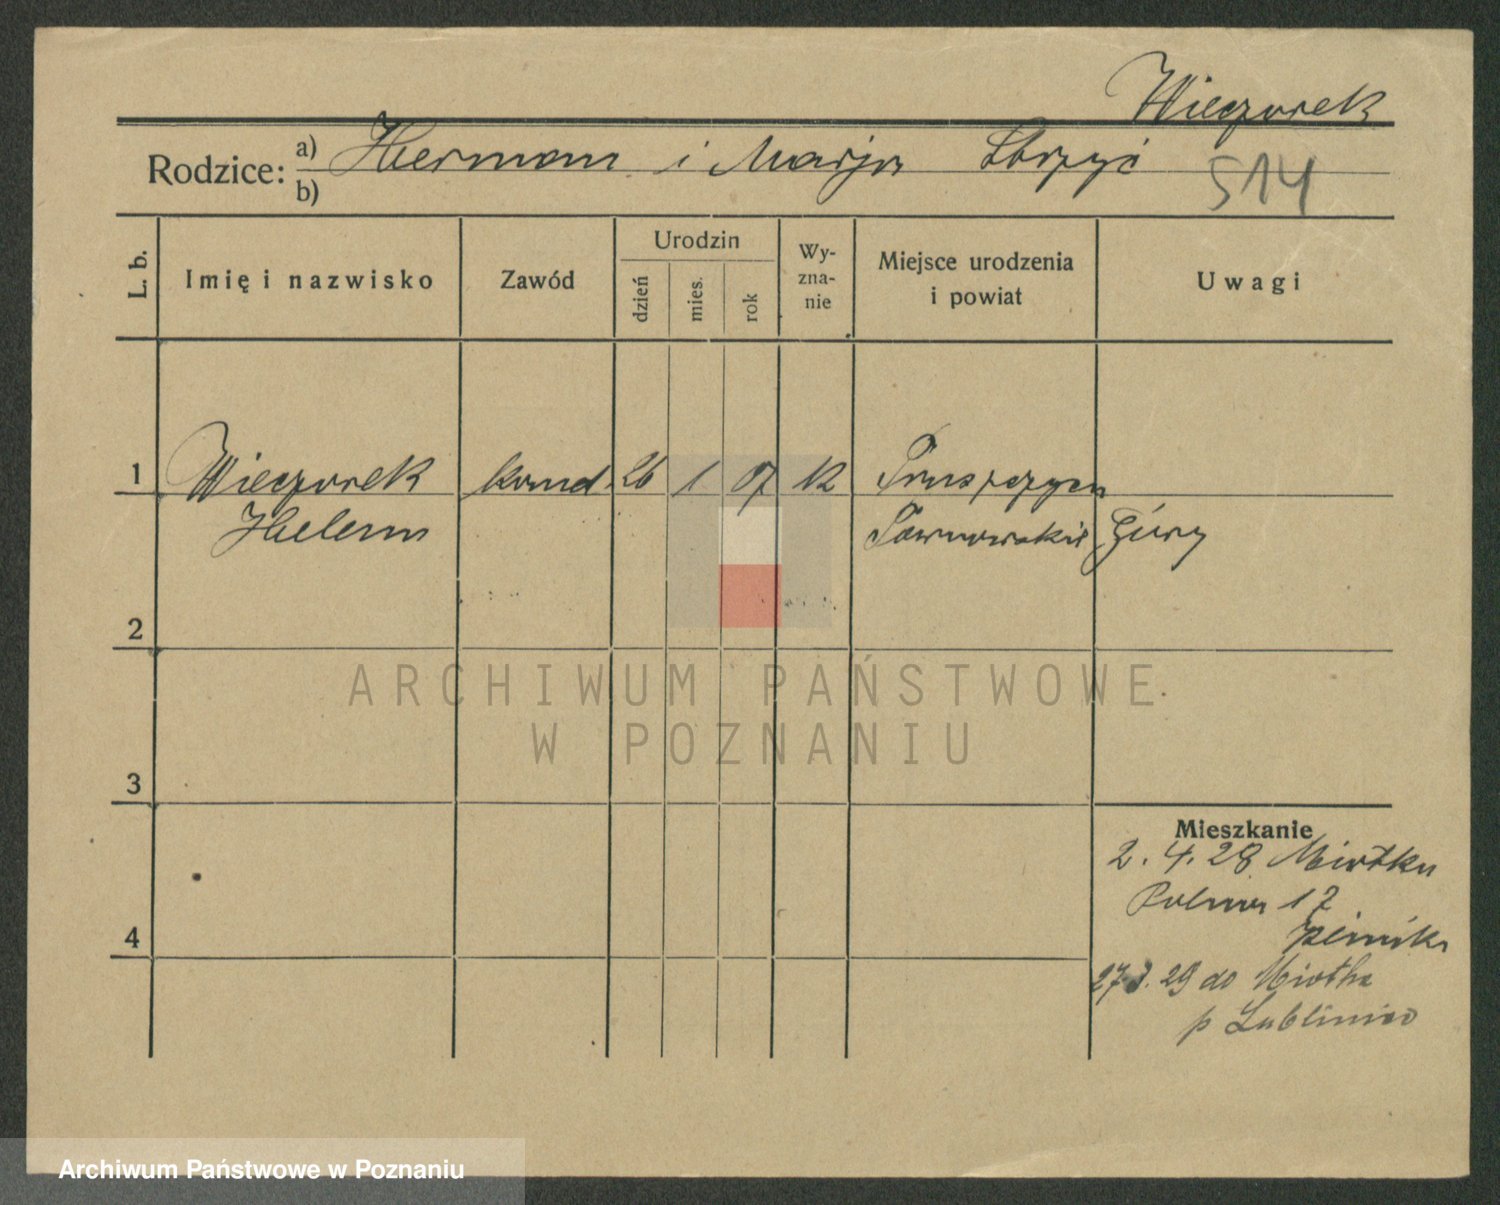 Wieczorek
Rodzice: a) Herman i Marja
b)
514
L. b.
Imię i nazwisko
Zawód
Urodzin
dzień
mies.
rok
Wy-
zna-
nie
Miejsce urodzenia
i powiat
Uwagi
1
Wieczorek
26 1 07
Helena
Tarnowskie Góry
2
ARCHIWUM PAŃSTWOWE
W POZNANIU
3
Mieszkanie
2. 4. 28
Polna 17
4
29 do
p Lubliniec
Archiwum Państwowe w Poznaniu